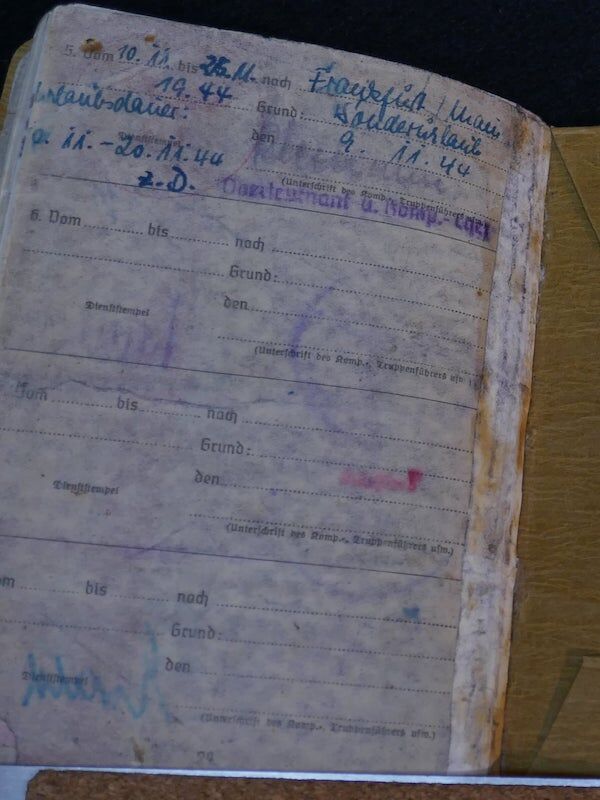 5. Vom 10. 11. bis 26. 11. nach Frankfurt / Main
19.44 Grund: Sonderurlaub
Urlaubsdauer: den 9. 11. 44
11. - 20. 11. 44
Dienststempel
(Unterschrift des Komp.-, Truppenführers usw.)
z. D. Oberleutnant u. Komp.-Chef
6. Vom bis nach
Grund:
Dienststempel den
(Unterschrift des Komp.-, Truppenführers usw.)
Vom bis nach
Grund:
Dienststempel den
(Unterschrift des Komp.-, Truppenführers usw.)
bis nach
Grund:
Dienststempel den
(Unterschrift des Komp.-, Truppenführers usw.)